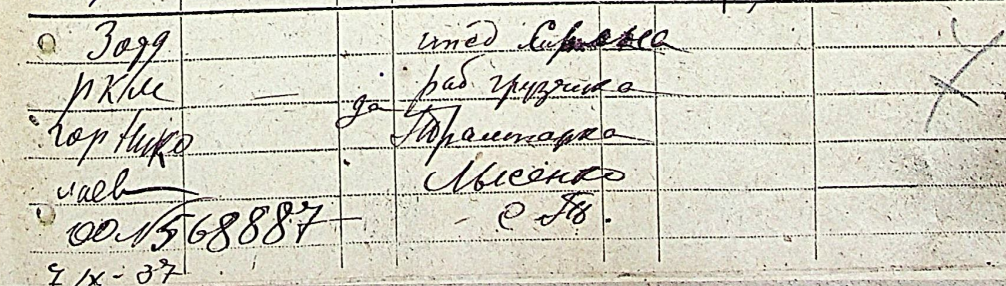 3 отд
РКМ —
гор Нико
лаев
ОО № 568887
7 IX - 37
да
раб грузчика
Трампарка
Лысенко